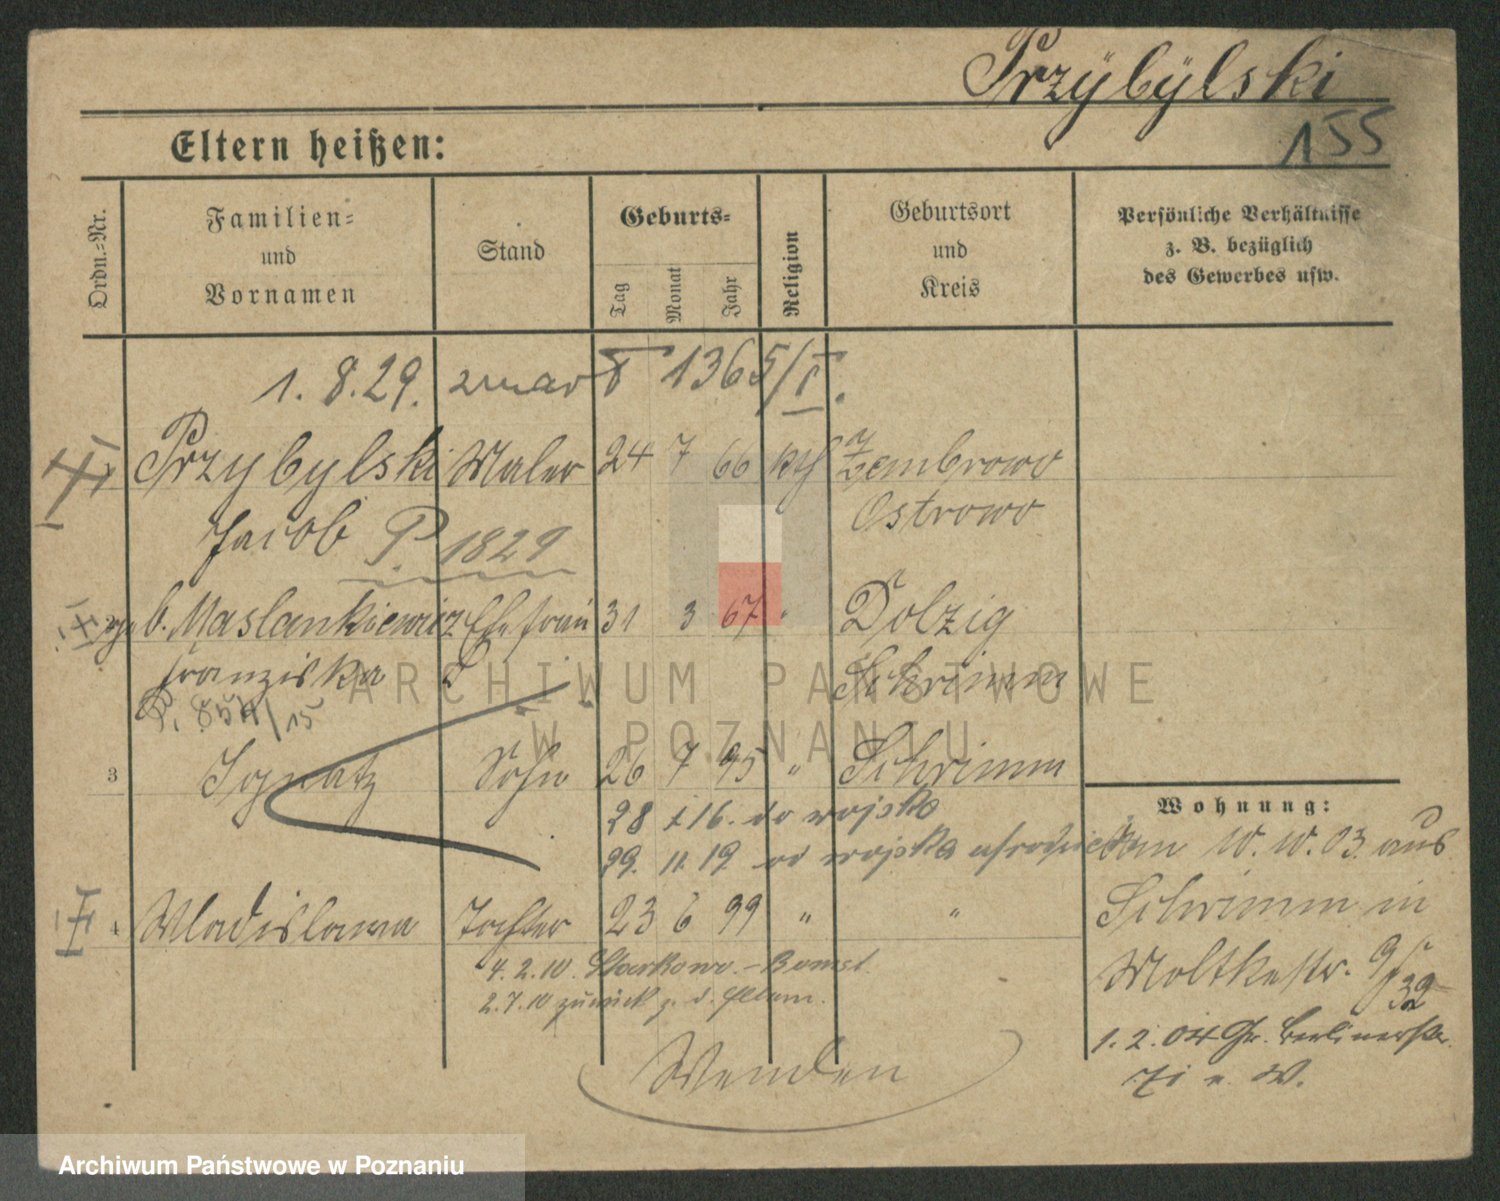 Przybylski
155
Eltern heißen:
Ordn.-Nr.
Familien-
und
Vornamen
Stand
Geburts-
Tag
Monat
Jahr
Religion
Geburtsort
und
Kreis
Persönliche Verhältnisse
z. B. bezüglich
des Gewerbes usw.
1. 8. 29. zmar 1365/I.
Przybylski Maler 24 7 66 kth Zembrowo
Jacob P. 1829 Ostrowo
2 g. b. Maslankiewicz Ehefrau 31 3 67 " Dolzig
Franziska Schrimm
P. 854/15
3 Ignatz Sohn 26 7 95 " Schrimm
28 1 16. do wojska
29. 11. 19 od wojska
4 Wladislawa Tochter 23 6 99 " "
4. 2. 10. Starkowo - Bomst.
2. 7. 10 zurück z. d. Eltern.
Wenden
Wohnung:
10. 10. 03. aus
Schrimm in
Moltkestr. 9/
32
1. 2. 04 Gr. Berlinerstr.
ARCHIWUM PAŃSTWOWE
W POZNANIU
Archiwum Państwowe w Poznaniu